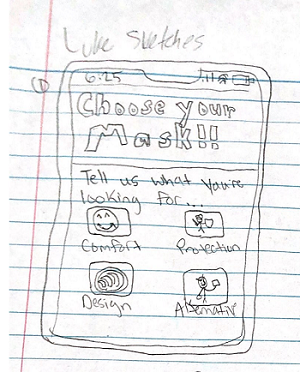 Luke Sketches
①
6:25
Choose your
Mask!!
Tell us what you're
looking for...
Comfort Protection
Design Alternativ